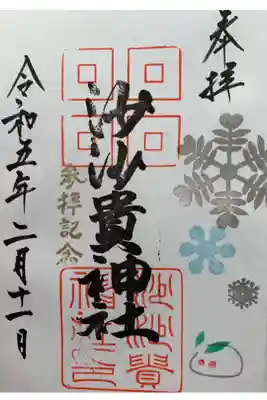 奉拝
沙沙貴神社
参拝記念
令和五年二月十一日